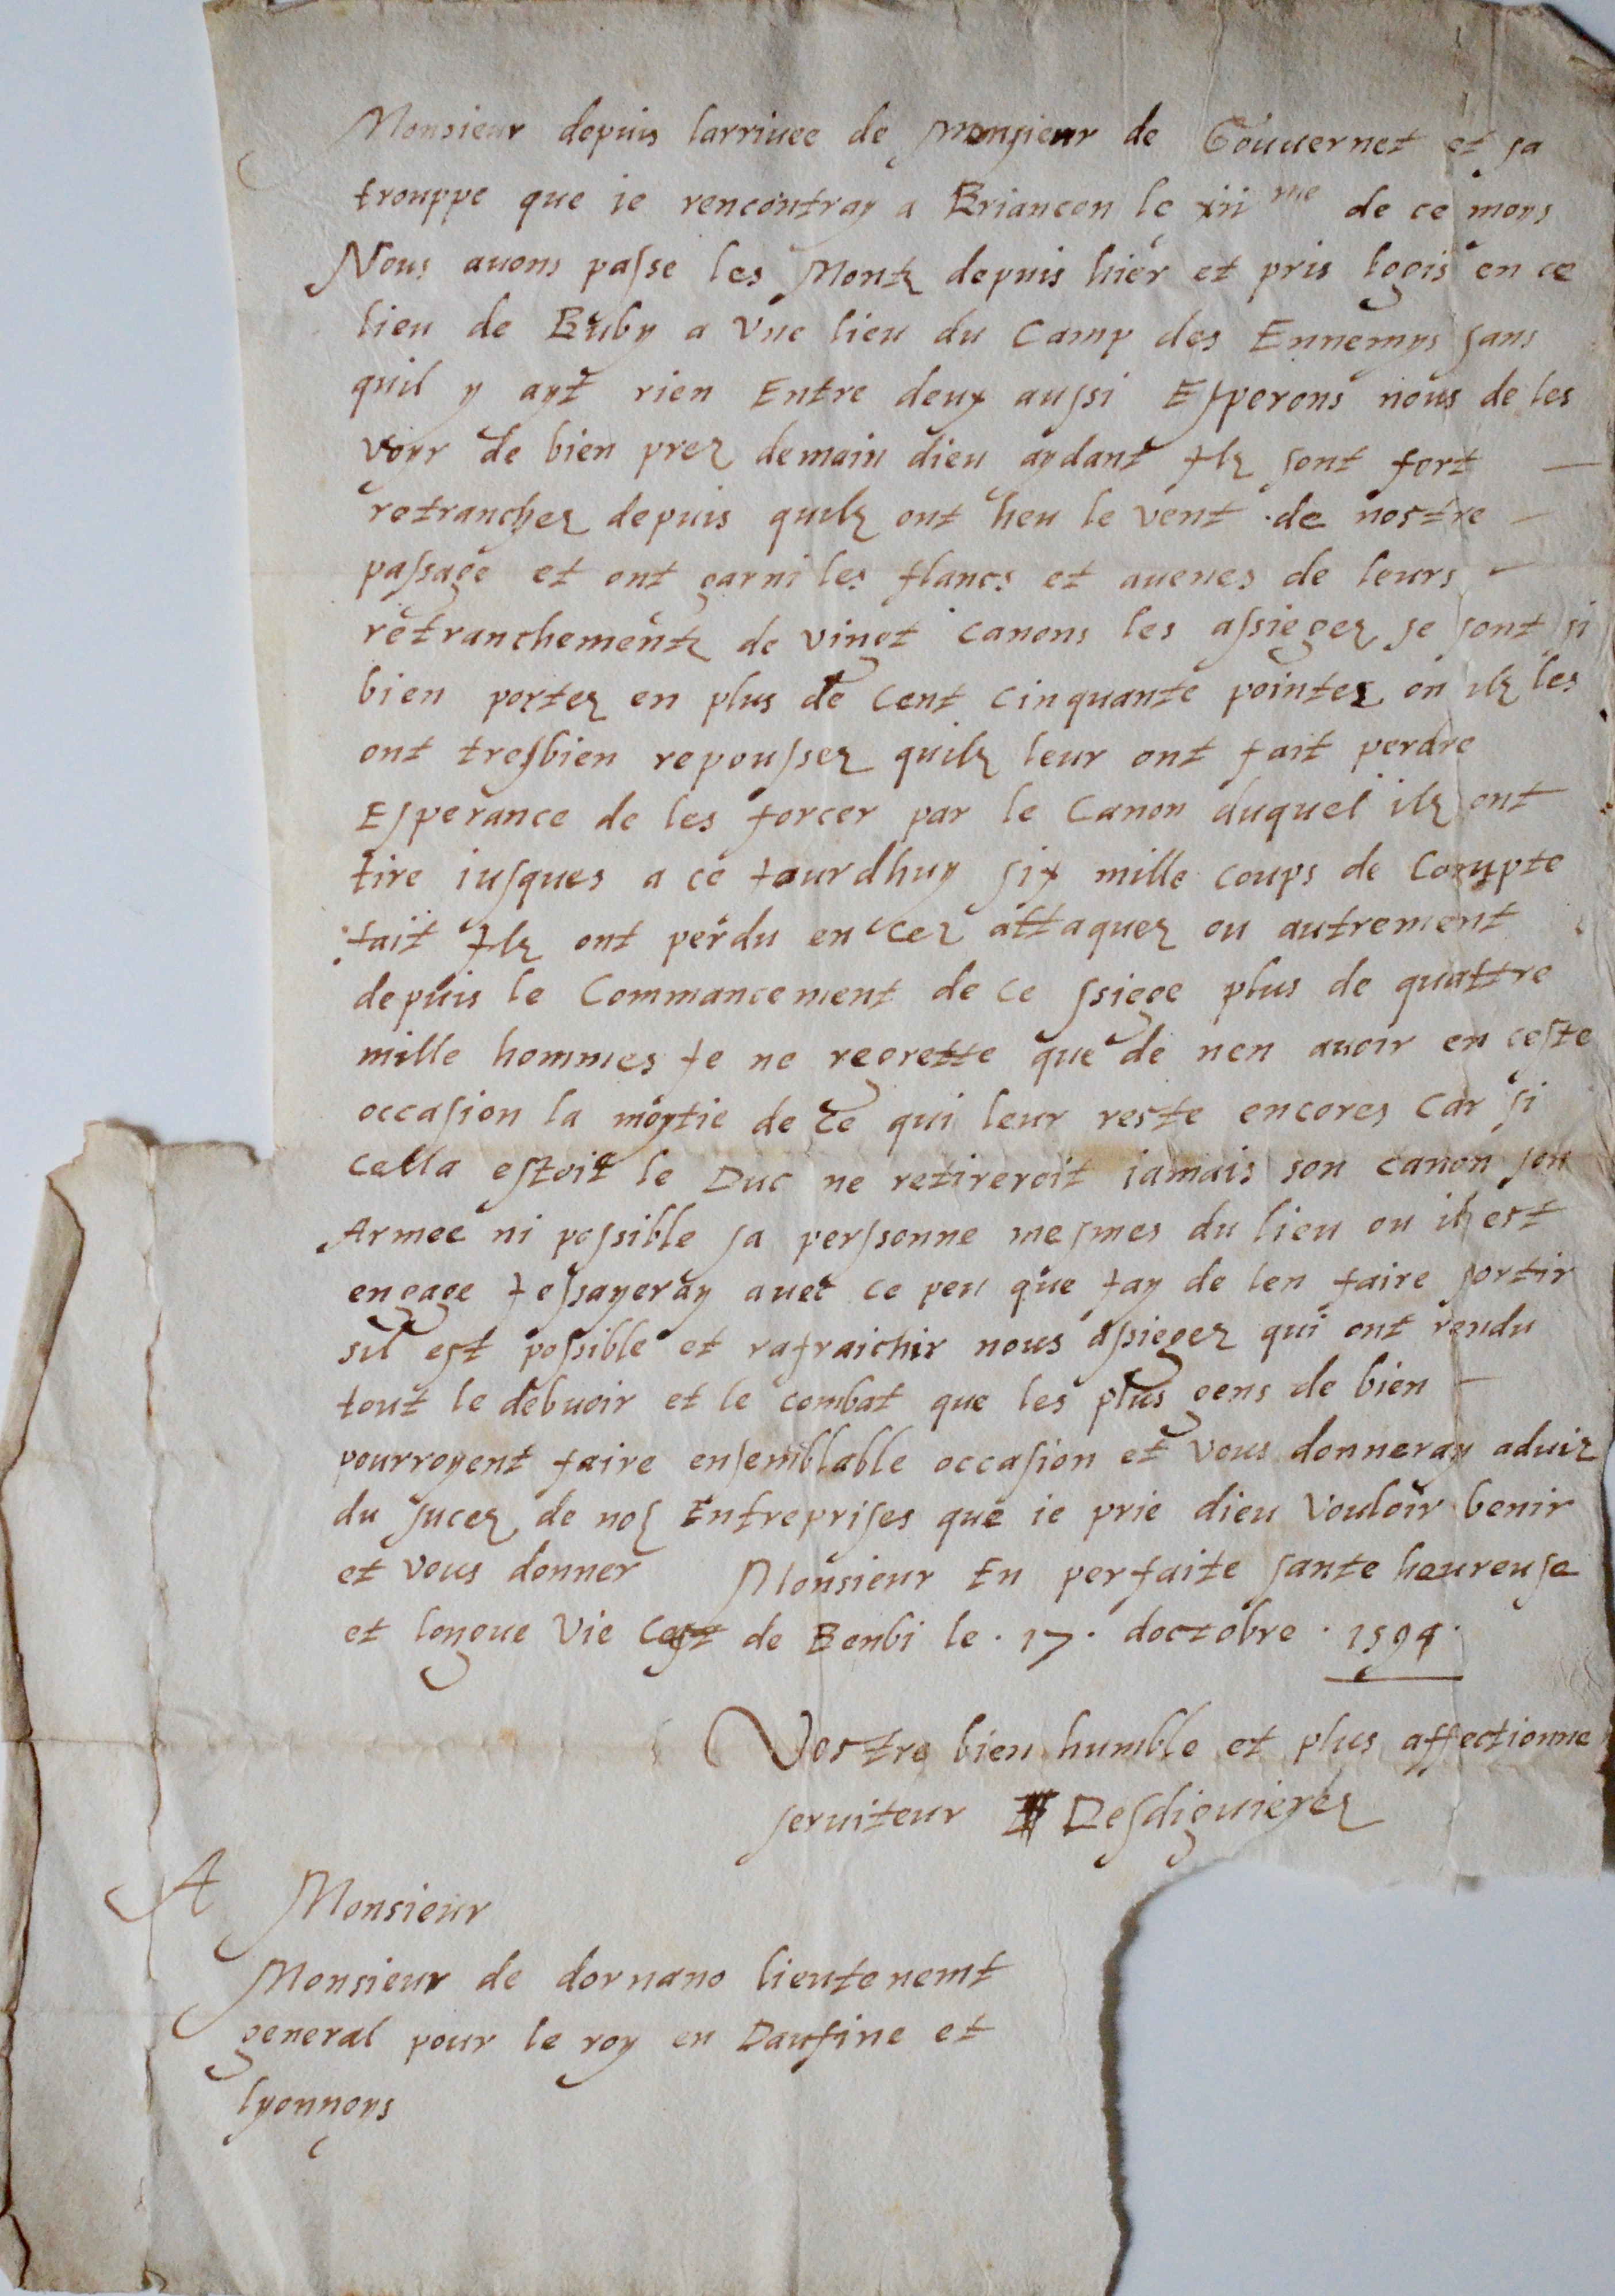 Monsieur depuis larriuee de Monsieur de Gouuernet et sa
trouppe que ie rencontray a Briancon le xii me de ce moys
Nous auons passe les Montz depuis hier et pris logis en ce
lieu de Buby a vne lieu du Camp des Ennemys sans
quil y ayt rien Entre deux aussi Esperons nous de les
voyr de bien prez demain dieu aydant Ilz sont fort
retranchez depuis quilz ont heu le vent de nostre
passage et ont garni les flancs et auenes de leurs
retranchementz de vingt canons les assiegez se sont si
bien portez en plus de cent cinquante pointez ou ilz les
ont tresbien repoussez quilz leur ont fait perdre
Esperance de les forcer par le Canon duquel ilz ont
tire iusques a ce Iourdhuy six mille coups de Compte
fait Ilz ont perdu en cez attaquez ou autrement
depuis le Commancement de ce ssiege plus de quattre
mille hommes Ie ne regrette que de nen auoir en ceste
occasion la moytie de ce qui leur reste encores Car si
Cella estoit le Duc ne retireroit iamais son canon son
Armee ni possible sa perssonne mesmes du lieu ou il est
engage Iessayeray auec ce peu que Iay de len faire sortir
sil est possible et rafraichir nous assiegez qui ont rendu
tout le debuoir et le combat que les plus gens de bien
pourroyent faire ensemblable occasion et vous donneray aduiz
du sucez de noz Entreprises que ie prie dieu vouloir benir
et vous donner Monsieur En perfaite sante heureuse
et longue vie Cest de Benbi le . 17 . doctobre . 1594 .
Vostre bien humble et plus affectionne
seruiteur Desdiguierez
A Monsieur
Monsieur de dornano lieutenemt
general pour le roy en Daufine et
lyonnoys